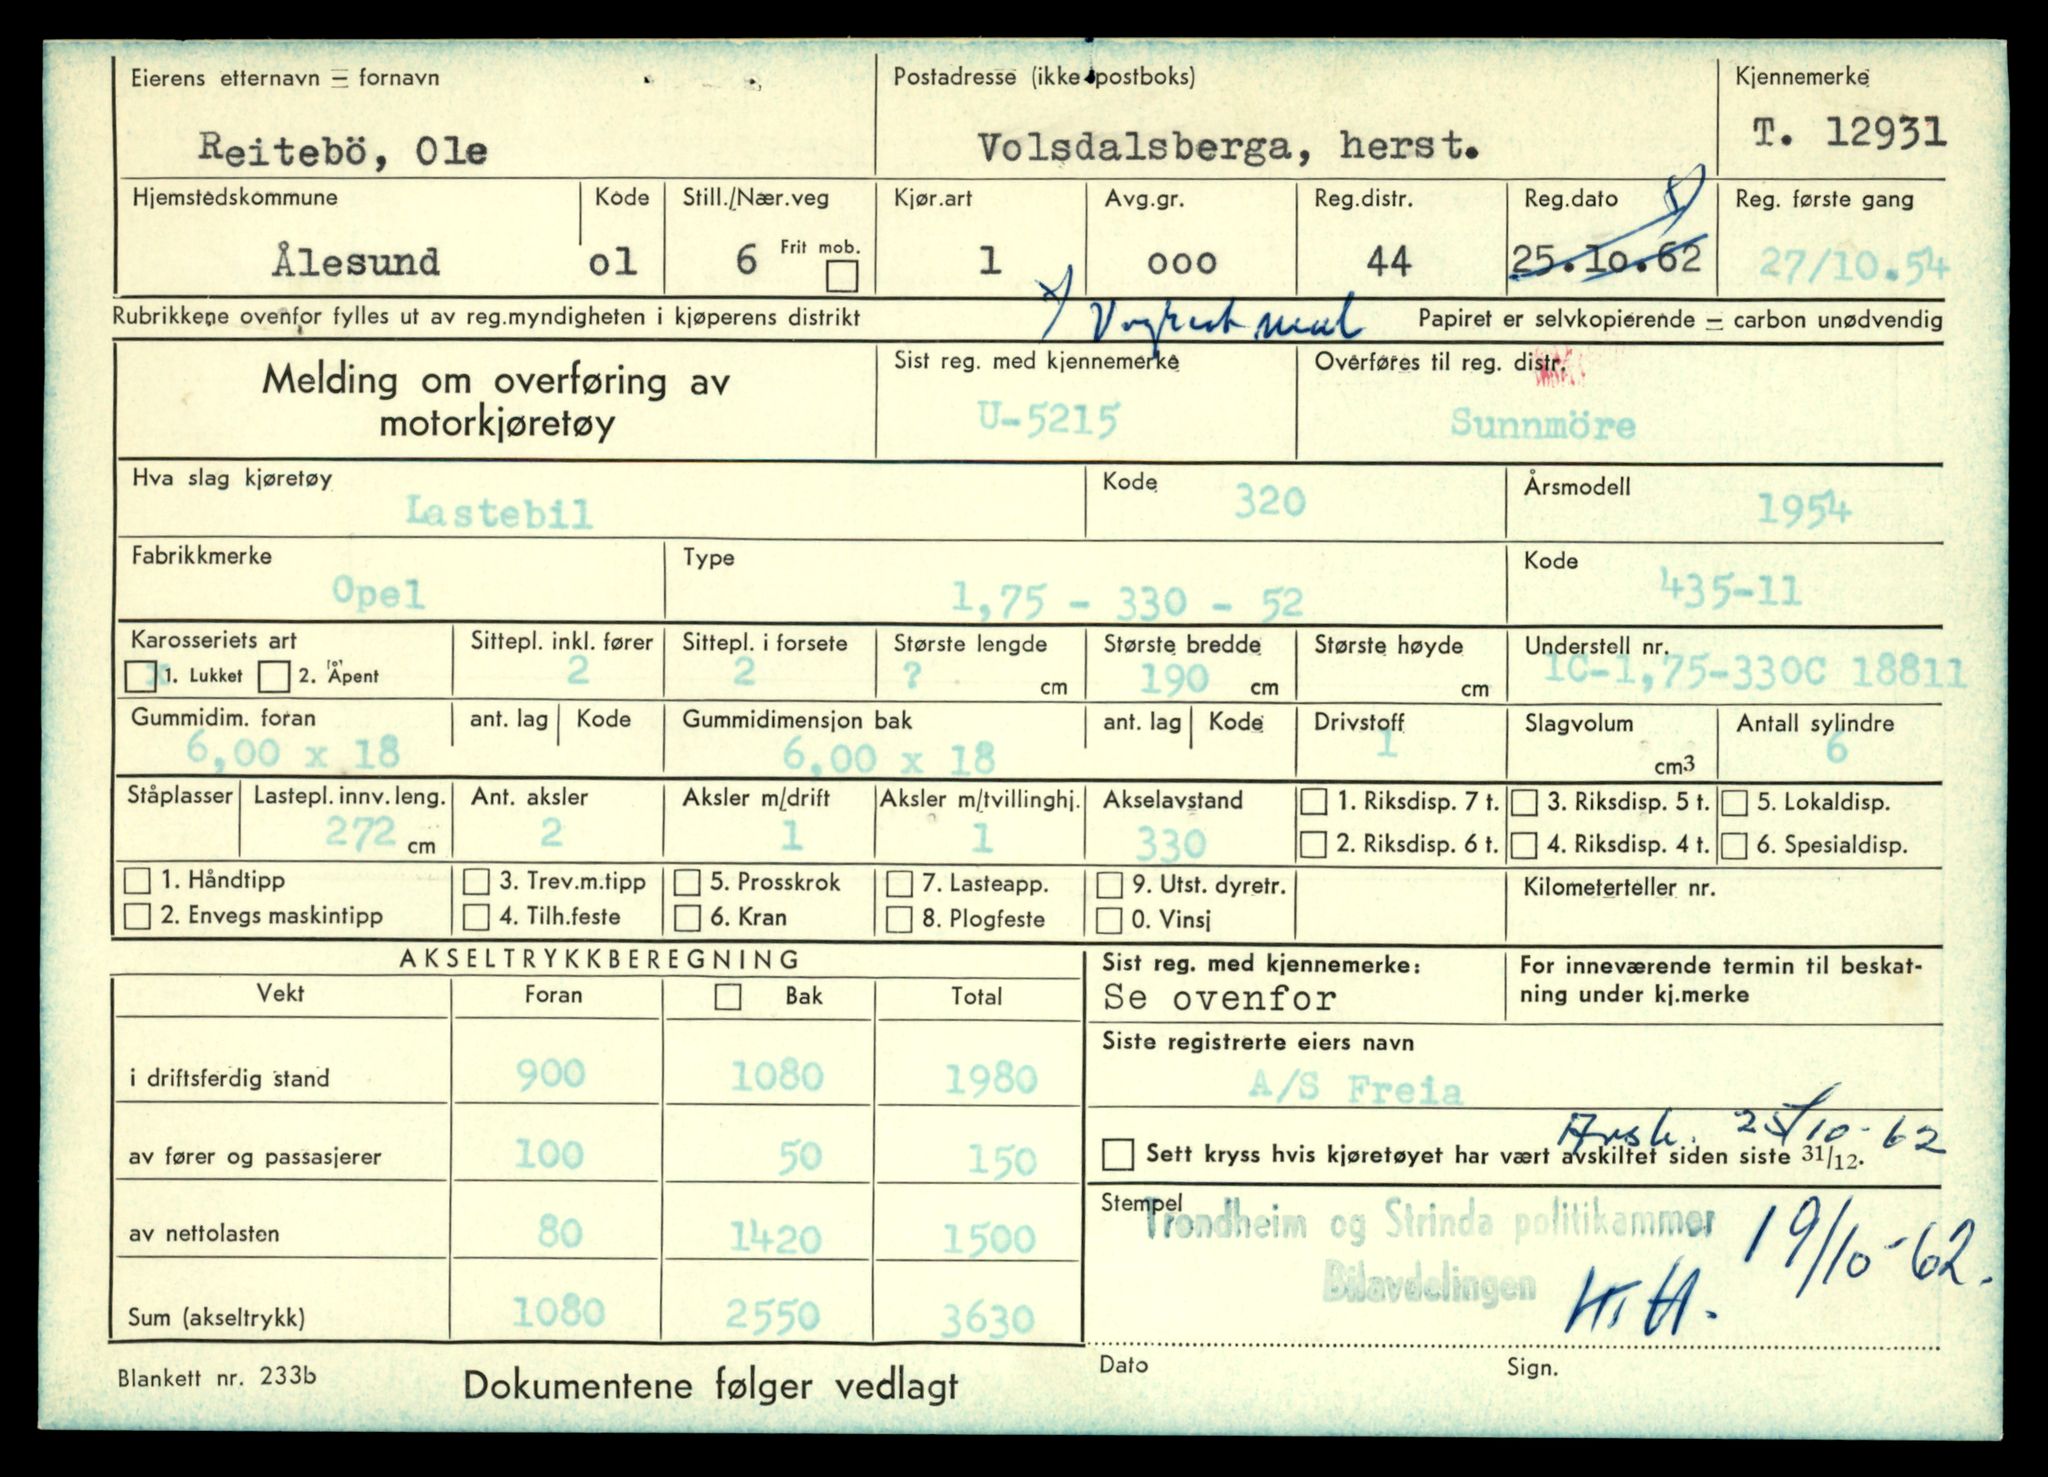 Eierens etternavn – fornavn Postadresse (ikke postboks) Kjennemerke
Reitebö, Ole Volsdalsberga, herst. T. 12931
Hjemstedskommune Kode Still./Nær.veg Kjør.art Avg.gr. Reg.distr. Reg.dato Reg. første gang
Ålesund 01 6 Frit mob. 1 000 44 25.10.62 27/10.54
Rubrikkene ovenfor fylles ut av reg.myndigheten i kjøperens distrikt Papiret er selvkopierende – carbon unødvendig
Melding om overføring av Sist reg. med kjennemerke Overføres til reg. distr.
motorkjøretøy U-5215 Sunnmöre
Hva slag kjøretøy Kode Årsmodell
Lastebil 320 1954
Fabrikkmerke Type Kode
Opel 1,75 - 330 - 52 435-11
Karosseriets art Sittepl. inkl. fører Sittepl. i forsete Største lengde Største bredde Største høyde Understell nr.
x 1. Lukket 2. Åpent 2 2 ? cm 190 cm cm 1C-1,75-330C 18811
Gummidim. foran ant. lag Kode Gummidimensjon bak ant. lag Kode Drivstoff Slagvolum Antall sylindre
6,00 x 18 6,00 x 18 1 cm3 6
Ståplasser Lastepl. innv. leng. Ant. aksler Aksler m/drift Aksler m/tvillinghj. Akselavstand 1. Riksdisp. 7 t. 3. Riksdisp. 5 t. 5. Lokaldisp.
272 cm 2 1 1 330 2. Riksdisp. 6 t. 4. Riksdisp. 4 t. 6. Spesialdisp.
1. Håndtipp 3. Trev.m.tipp 5. Prosskrok 7. Lasteapp. 9. Utst. dyretr. Kilometerteller nr.
2. Envegs maskintipp 4. Tilh.feste 6. Kran 8. Plogfeste 0. Vinsj
AKSELTRYKKBEREGNING Sist reg. med kjennemerke: For inneværende termin til beskat-
Vekt Foran Bak Total Se ovenfor ning under kj.merke
Siste registrerte eiers navn
i driftsferdig stand 900 1080 1980 A/S Freia
25/10-62
av fører og passasjerer 100 50 150 Sett kryss hvis kjøretøyet har vært avskiltet siden siste 31/12.
Stempel Trondheim og Strinda politikammer 19/10-62.
av nettolasten 80 1420 1500
Bilavdelingen H.H.
Sum (akseltrykk) 1080 2550 3630
Dato Sign.
Blankett nr. 233b Dokumentene følger vedlagt